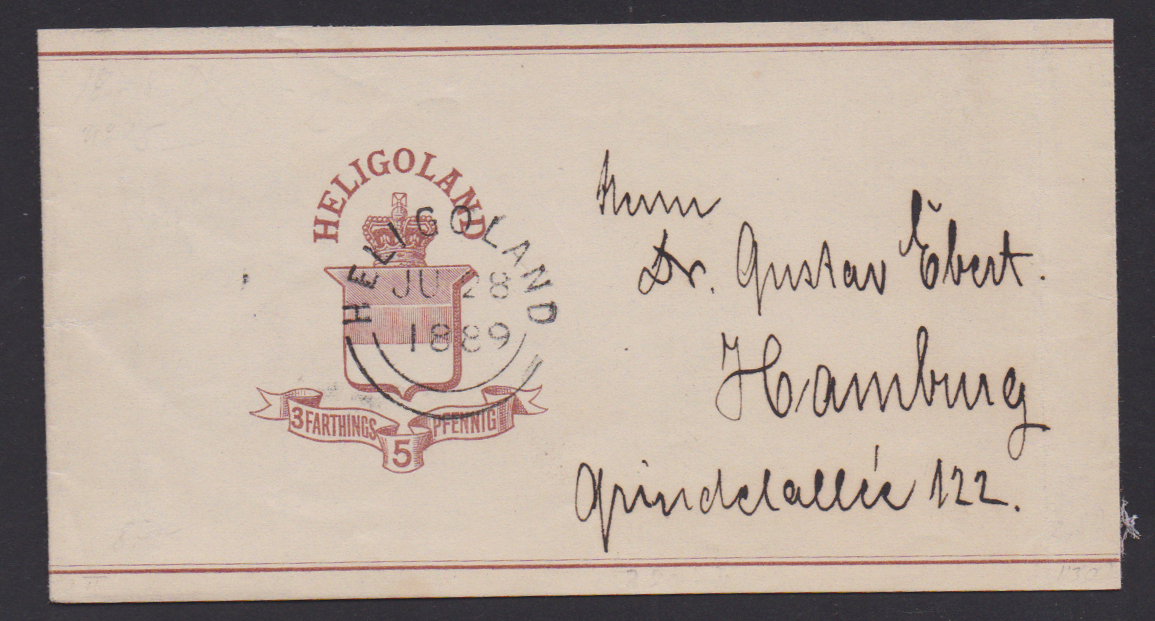 HELIGOLAND
3 FARTHINGS
5
PFENNIG
HELIGOLAND
JU 28
1889
Herrn
Dr. Gustav Ebert.
Hamburg
Grindelallée 122.